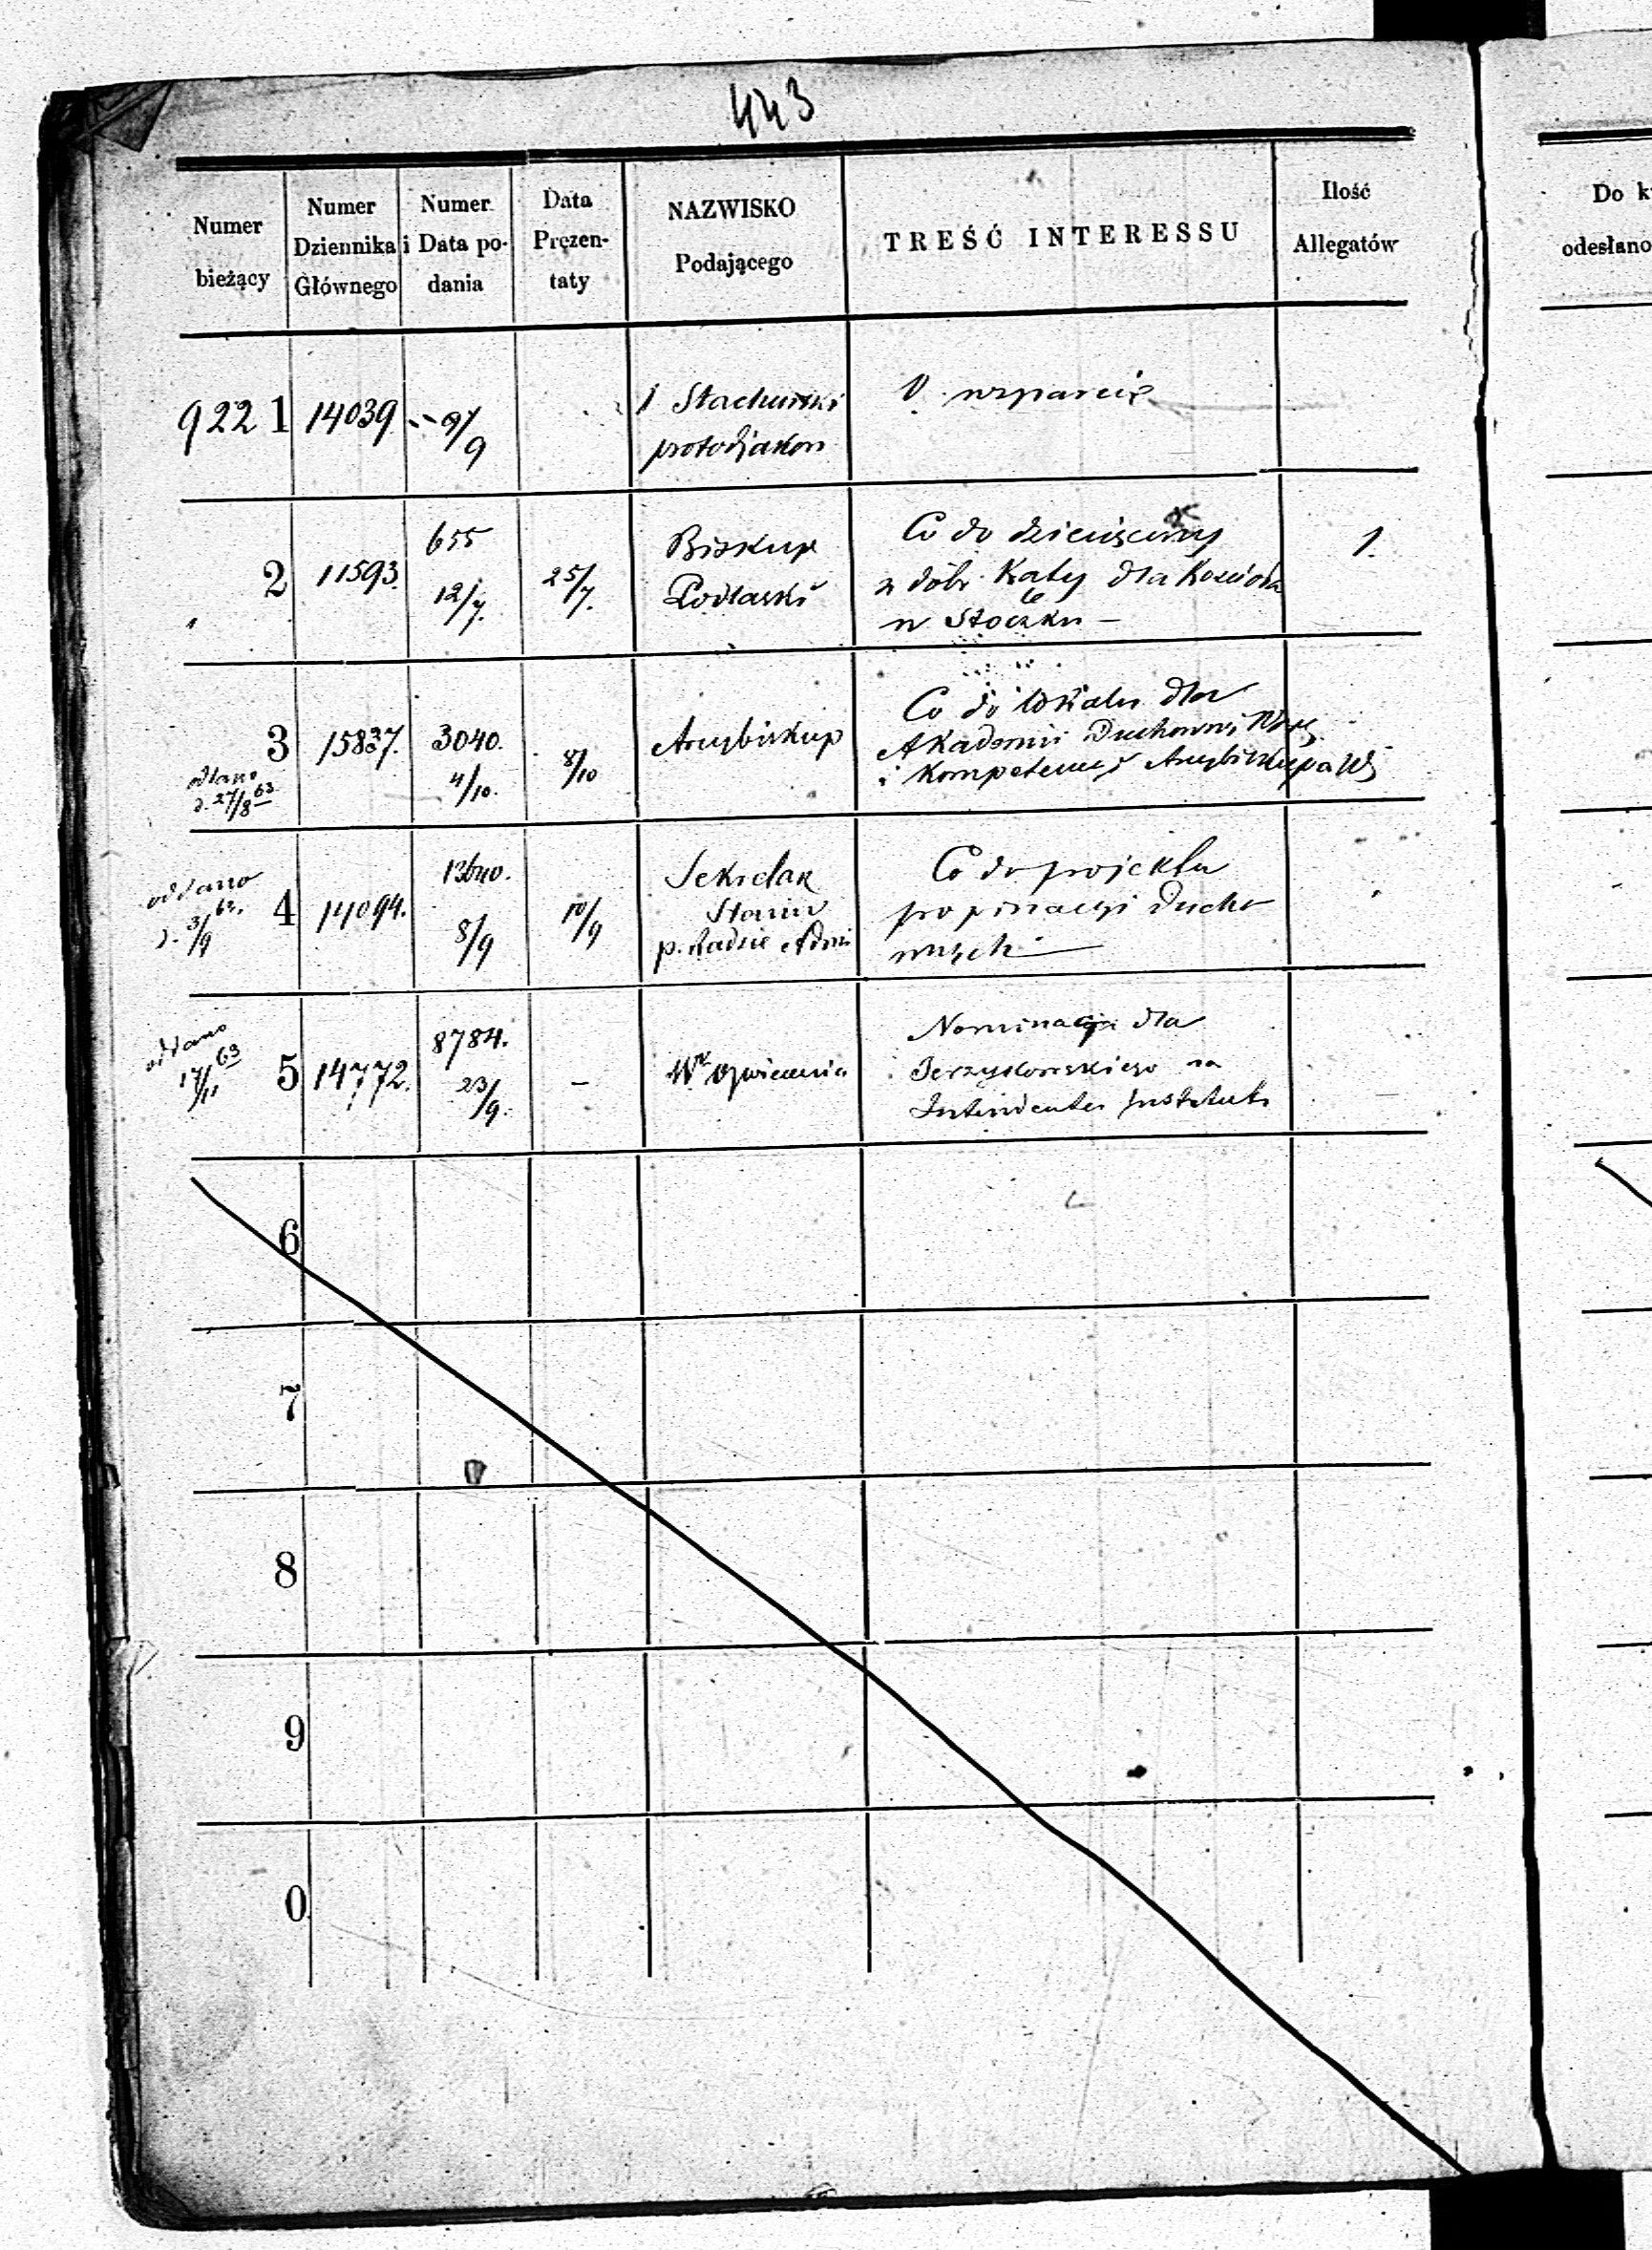 443
Numer bieżący
Numer Dziennika Głównego
Numer i Data podania
Data Pręzentaty
NAZWISKO Podającego
TREŚĆ INTERESSU
Ilość Allegatów
Do k
odesłano
922 1 14039 9/9
Stachurski
protodjakon
O wsparcie
2 11593. 655
12/7. 25/7.
Biskup
Podlaski
Co do dziesięciny
z dóbr Kąty dla Kościoła
w Stoczku —
1.
3 15837. 3040.
4/10. 8/10
Arcybiskup
Co do lokalu dla
Akademii Duchownej
i Kompetencyi Arcybiskupa
27/8 63
4 14094. 13640.
8/9 10/9
Sekretarz
Stanu
p. Radzie Admi
Co do projektu
propinacyi Ducho
wnych —
oddano
3/9
5 14772. 8784.
23/9. —
Oświecenia
Nominacja dla
na
Intendenta Instytut
oddano
17/11 63
6
7
8
9
0